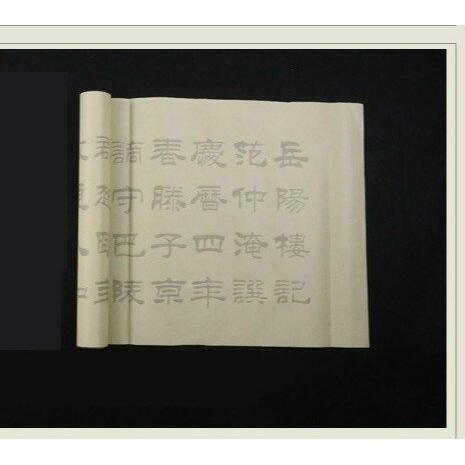 岳陽樓記
范仲淹譔
慶曆四年
春滕子京
謫守巴